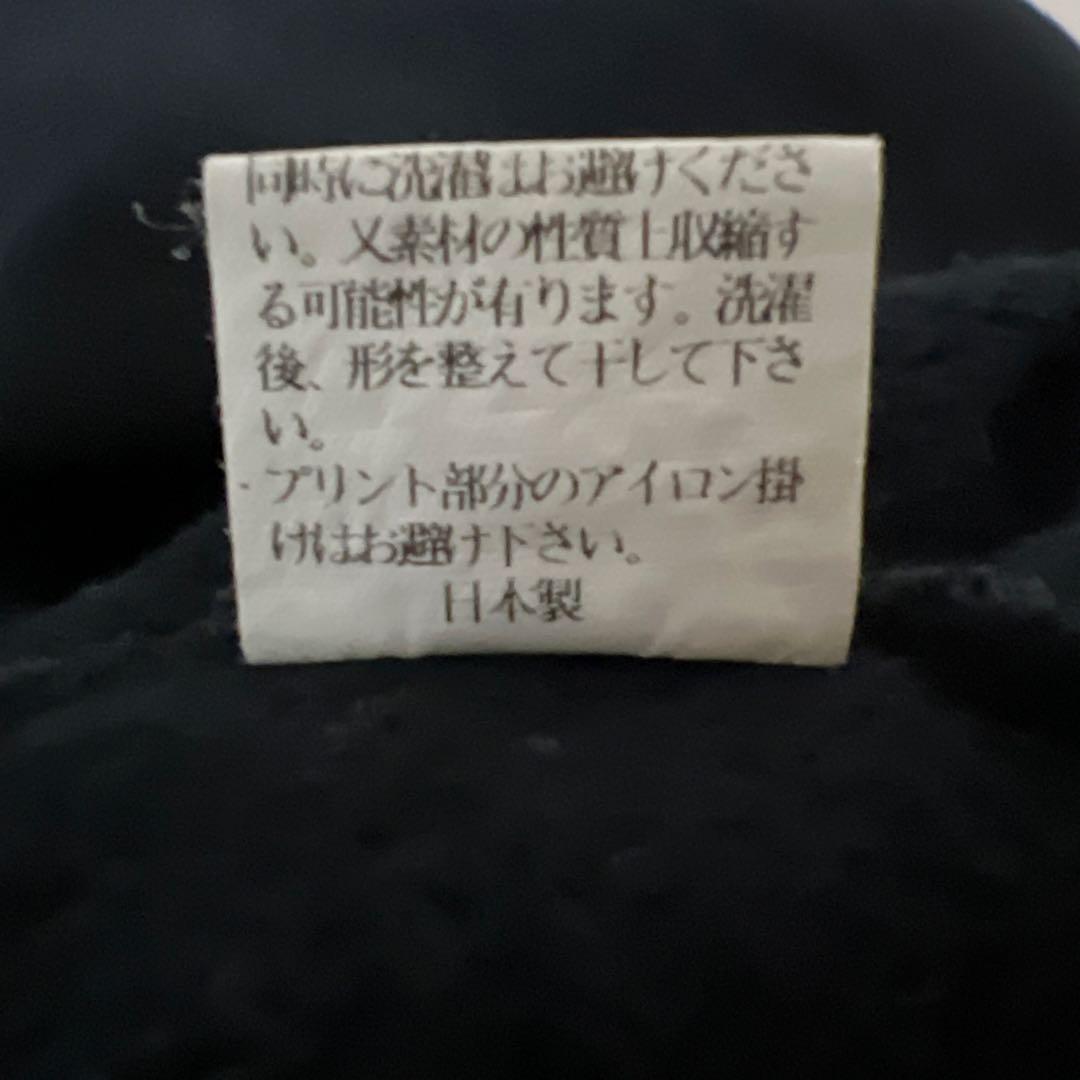 同時に洗濯はお避けくださ
い。又素材の性質上収縮す
る可能性が有ります。洗濯
後、形を整えて干して下さ
い。
・プリント部分のアイロン掛
けはお避け下さい。
日本製